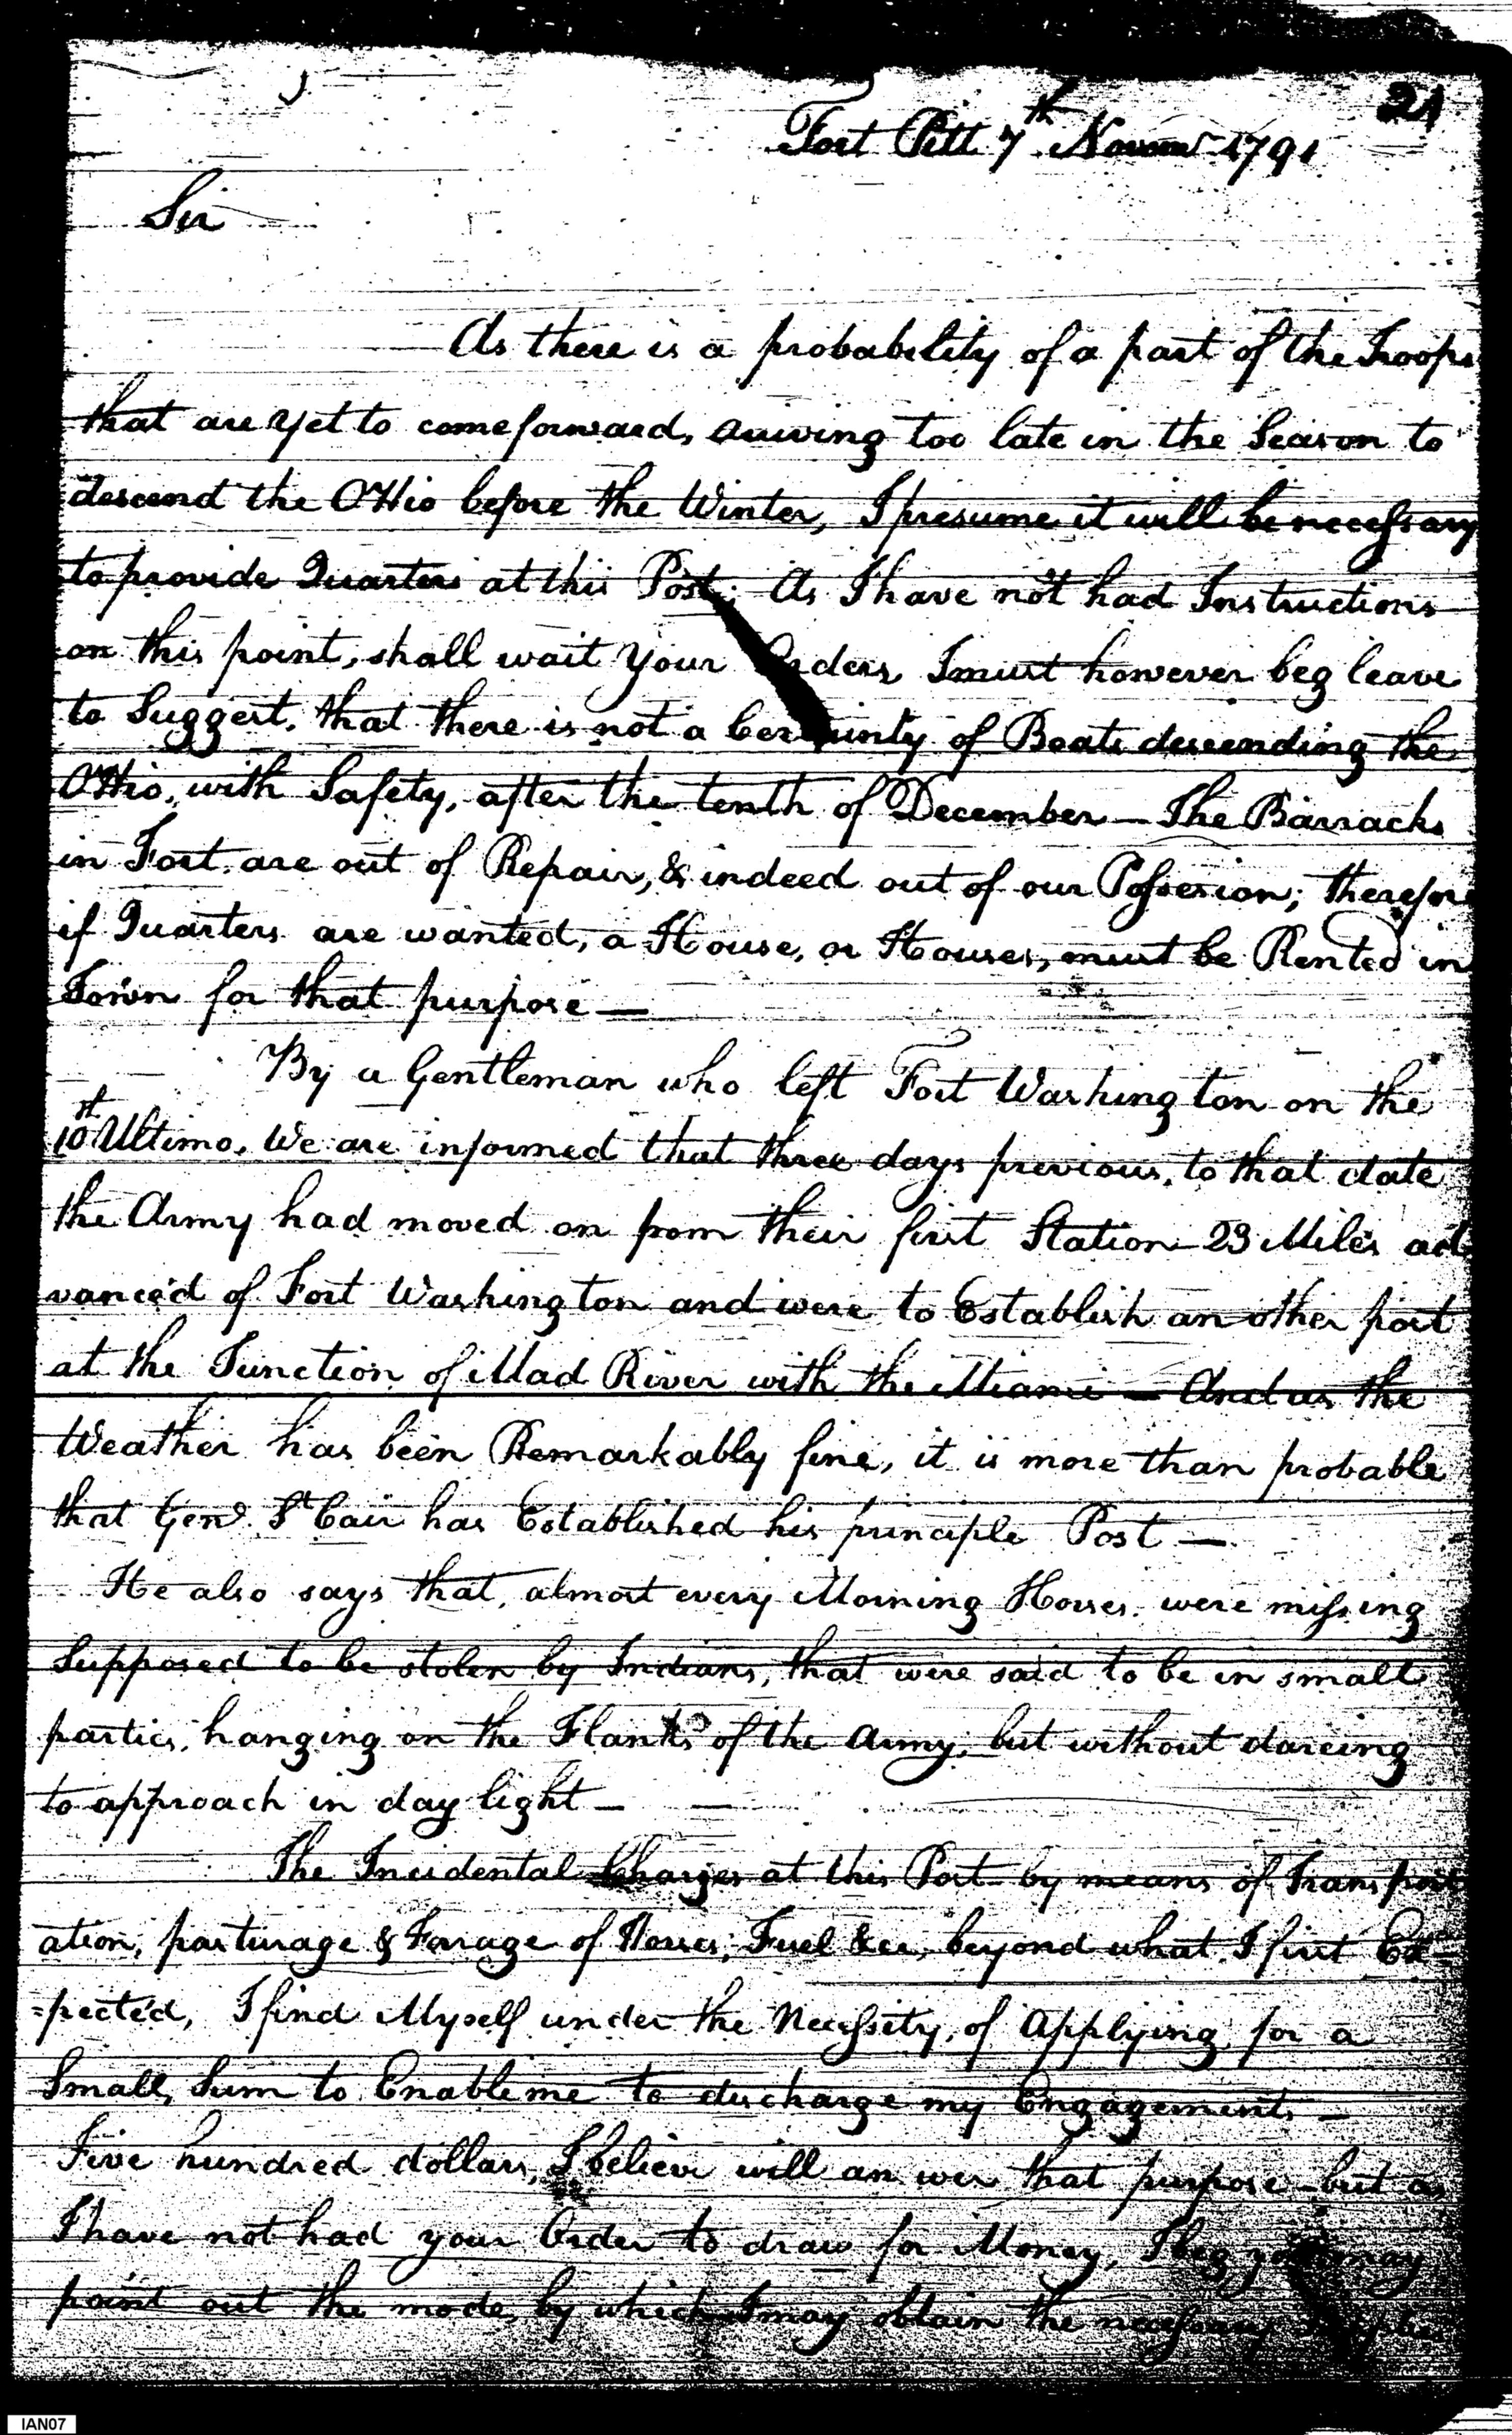 21
Fort Pitt 7th Novem 1791
Sir
As there is a probability of a part of the Troops
that are yet to come forward, arriving too late in the Season to
descend the OHio before the Winter, I presume it will be necessary
to provide Quarters at this Post; As I have not had Instructions
on this point, shall wait your Orders, I must however beg leave
to Suggest, that there is not a Certainty of Boats descending the
OHio, with Safety, after the tenth of December — The Barracks
in Fort are out of Repair, & indeed out of our Possesion; therefore
if Quarters are wanted, a House, or Houses, must be Rented in
Town for that purpose —
By a Gentleman who left Fort Washington on the
10st Ultimo, We are informed that three days previous, to that date
the Army had moved on from their first Station 23 Miles ad
vanced of Fort Washington and were to Establish an other post
at the Junction of Mad River with the Miami — And as the
Weather has been Remarkably fine, it is more than probable
that Genl. St Cair has Established his principle Post —
He also says that, almost every Morning Horses were missing
Supposed to be stolen by Indians, that were said to be in small
parties, hanging on the Flanks of the Army, but without dareing
to approach in day light —
The Incidental Charges at this Post by means of Transport
ation, pasturage & Forage of Horses, Fuel &c, beyond what I first Ex
=pected, I find Myself under the Necessity, of Applying for a
Small, Sum to Enable me to discharge my Engagements —
Five hundred dollars, I believe will answer that purpose — but as
I have not had your Order to draw for Money, I beg you may
point out the mode, by which I may obtain the necessary
IAN07